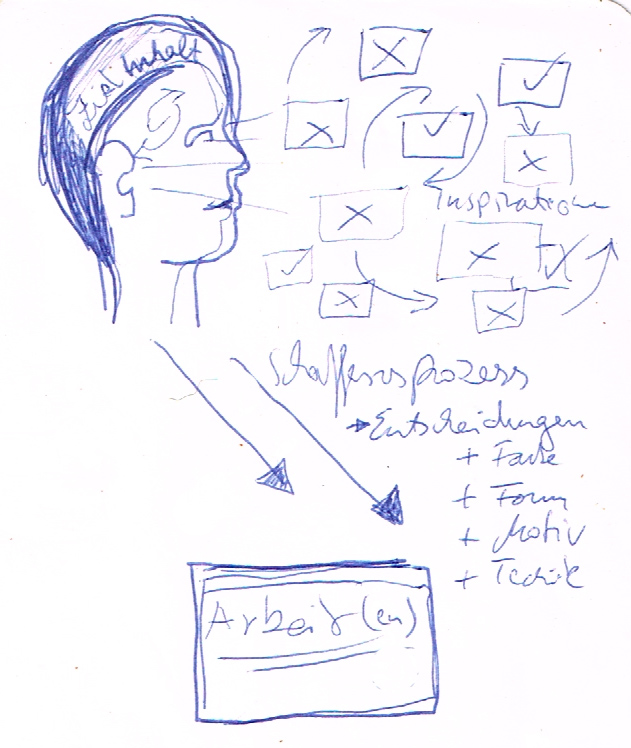 Ziel Inhalt
Inspiration
Schaffensprozess
→ Entscheidungen
+ Farbe
+ Form
+ Motiv
+ Technik
Arbeit(en)